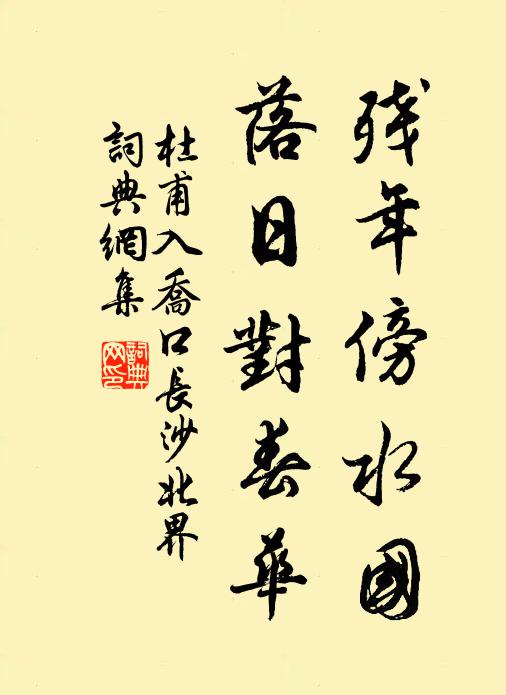 残年傍水國
落日對春華
杜甫入喬口長沙北界
詞典網集
詞典网印